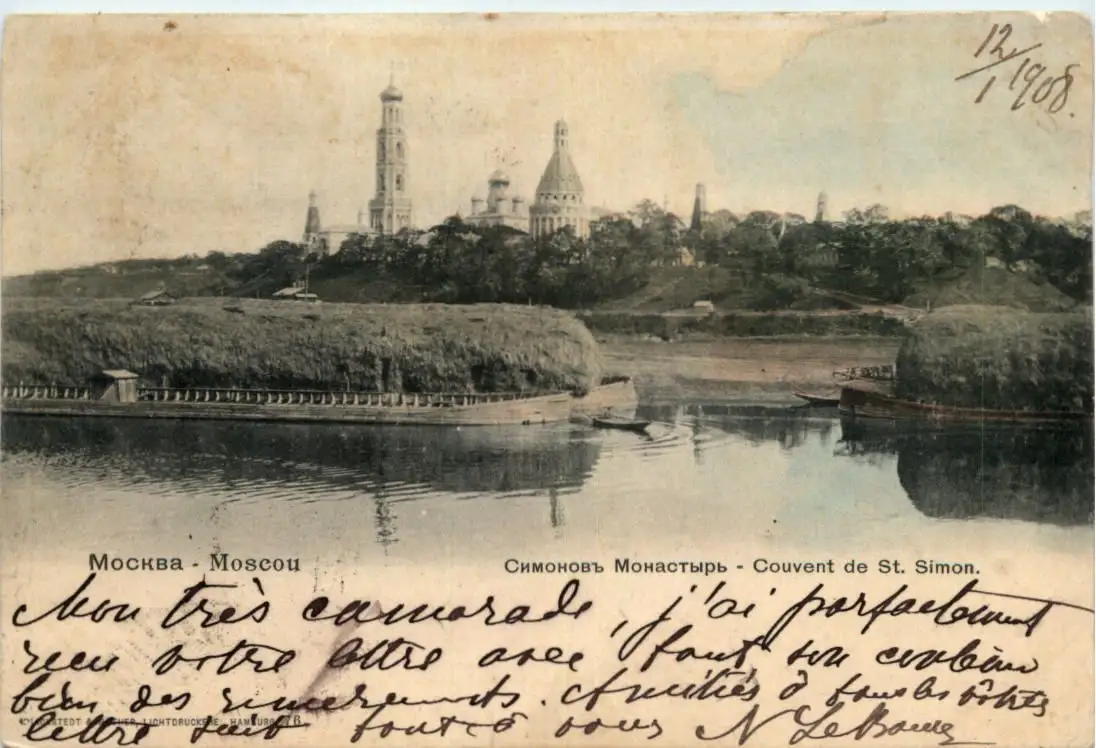 12/1 1908.
Москва - Moscou
Симоновъ Монастырь - Couvent de St. Simon.
Mon très camarade, j'ai parfactement
recu votre lettre avec tout son
bien des remerciments. Amitiés à tous les vôtres
lettre suit tout à vous N
LICHTDRUCKEREI, HAMBURG 76